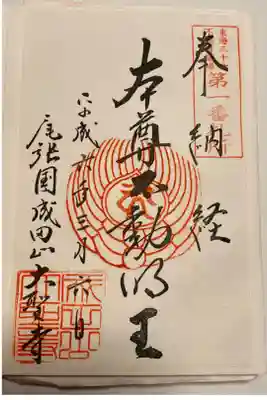 東海三十
第一番
奉納経
本尊不動明王
平成 三月 日
尾張国成田山大聖寺